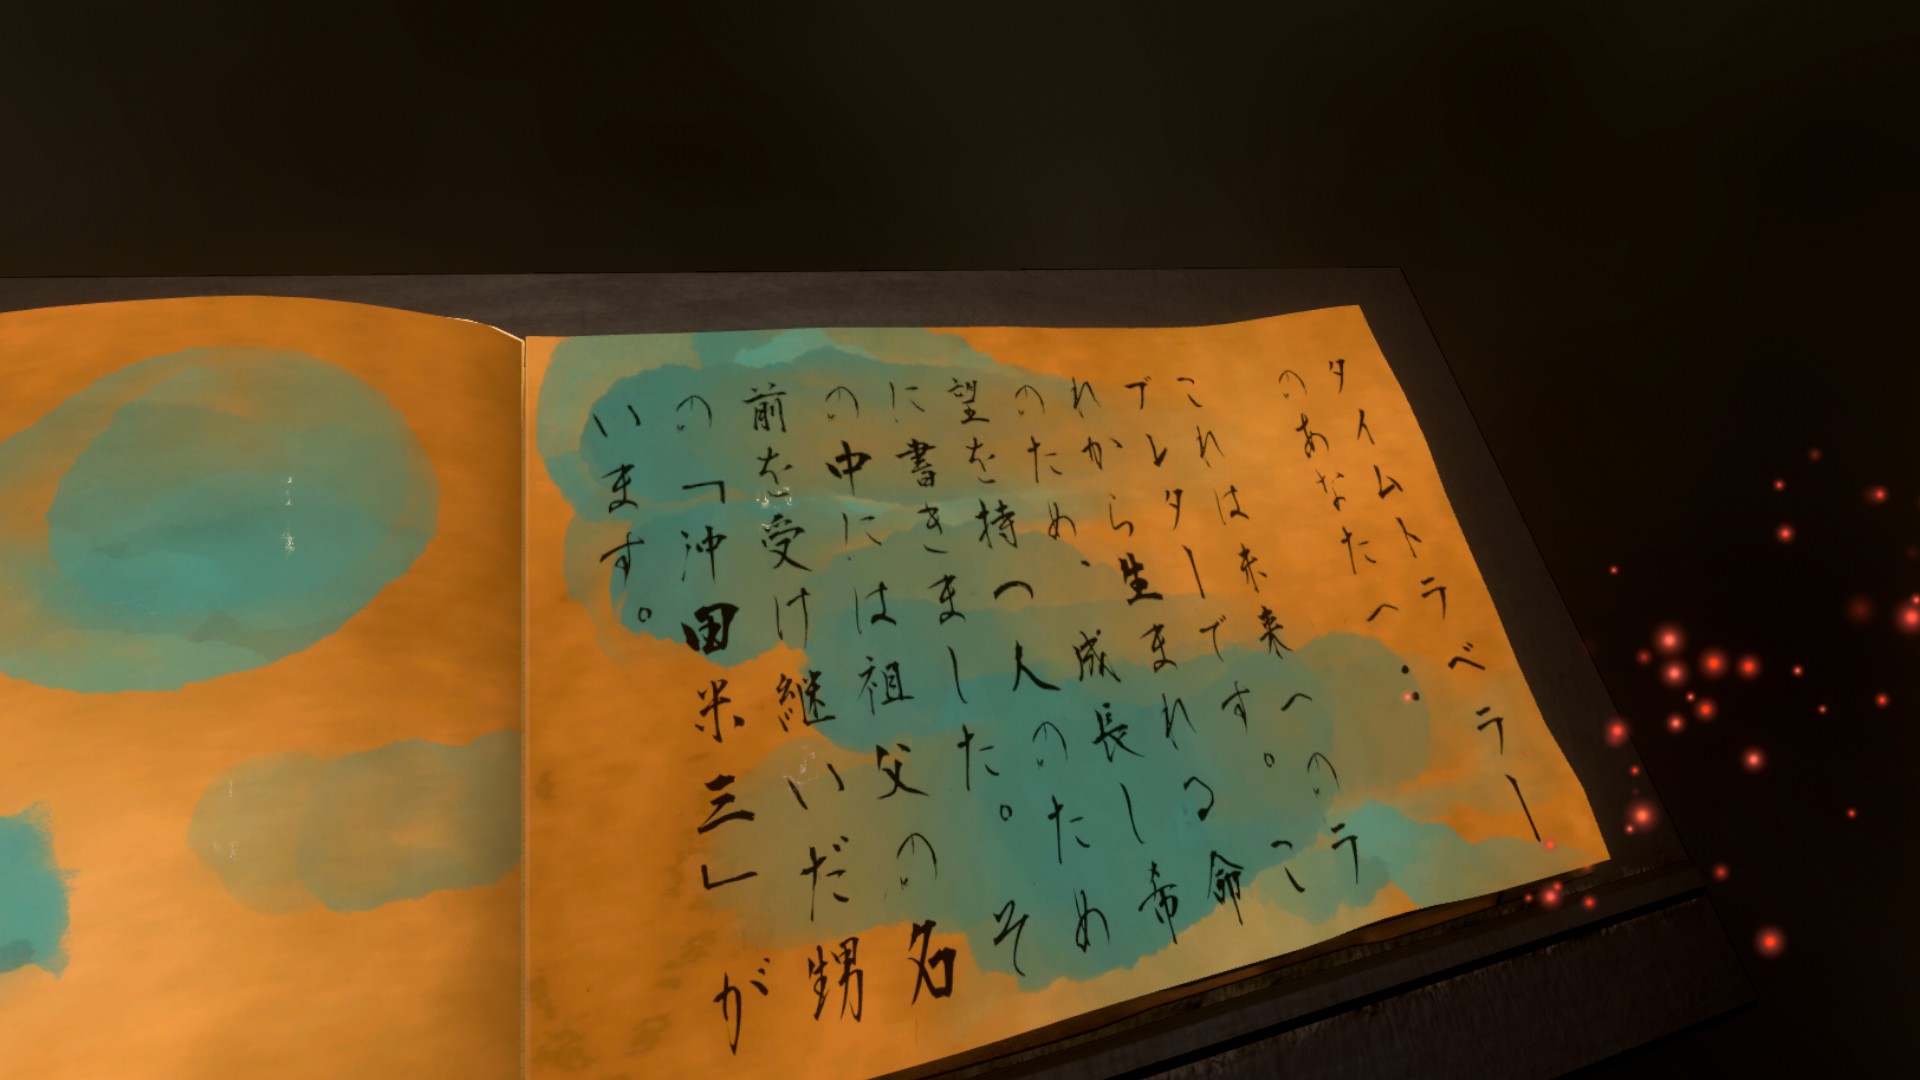 タイムトラベラー
のあなたへ‥
これは未来へのラ
ブレターです。こ
れから生まれる命
のため、成長し希
望を持つ人のため
に書きました。そ
の中には祖父の名
前を受け継いだ甥
の「沖田米三」が
います。